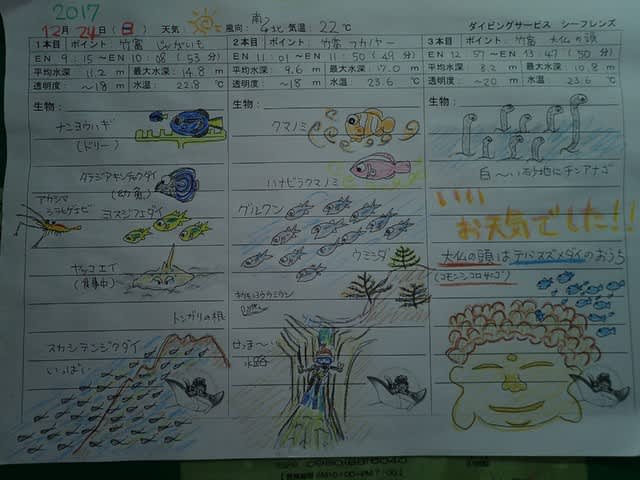 2017
12月24日(日) 天気: 風向: 南/北 気温: 22℃ ダイビングサービス シーフレンズ
1本目 ポイント: 竹富 じゃがいも
EN 9:15～EN 10:08 (53分)
平均水深: 11.2m 最大水深: 14.8m
透明度: ～18m 水温: 22.8℃
生物:
ナニヨウハギ
(ドリー)
(幼魚)
アカシマ
シラヒゲエビ
ヨスジフエダイ
ヤッコエイ
(食事中)
トンガリの根
スカシテンジクダイ
いっぱい
2本目 ポイント: 竹富
EN 11:01～EN 11:50 (49分)
平均水深: 9.6m 最大水深: 17.0m
透明度: ～18m 水温: 23.6℃
生物:
クマノミ
ハナビラクマノミ
グルクン
ウミシダ
せっま～い
水路
3本目 ポイント: 竹富 大仏の頭
EN 12:57～EN 13:47 (50分)
平均水深: 8.2m 最大水深: 10.8m
透明度: ～20m 水温: 23.6℃
生物:
白～い砂地にチンアナゴ
いい
お天気でした!!
大仏の頭はデバスズメダイのおうち
(コモンコロサンゴ)